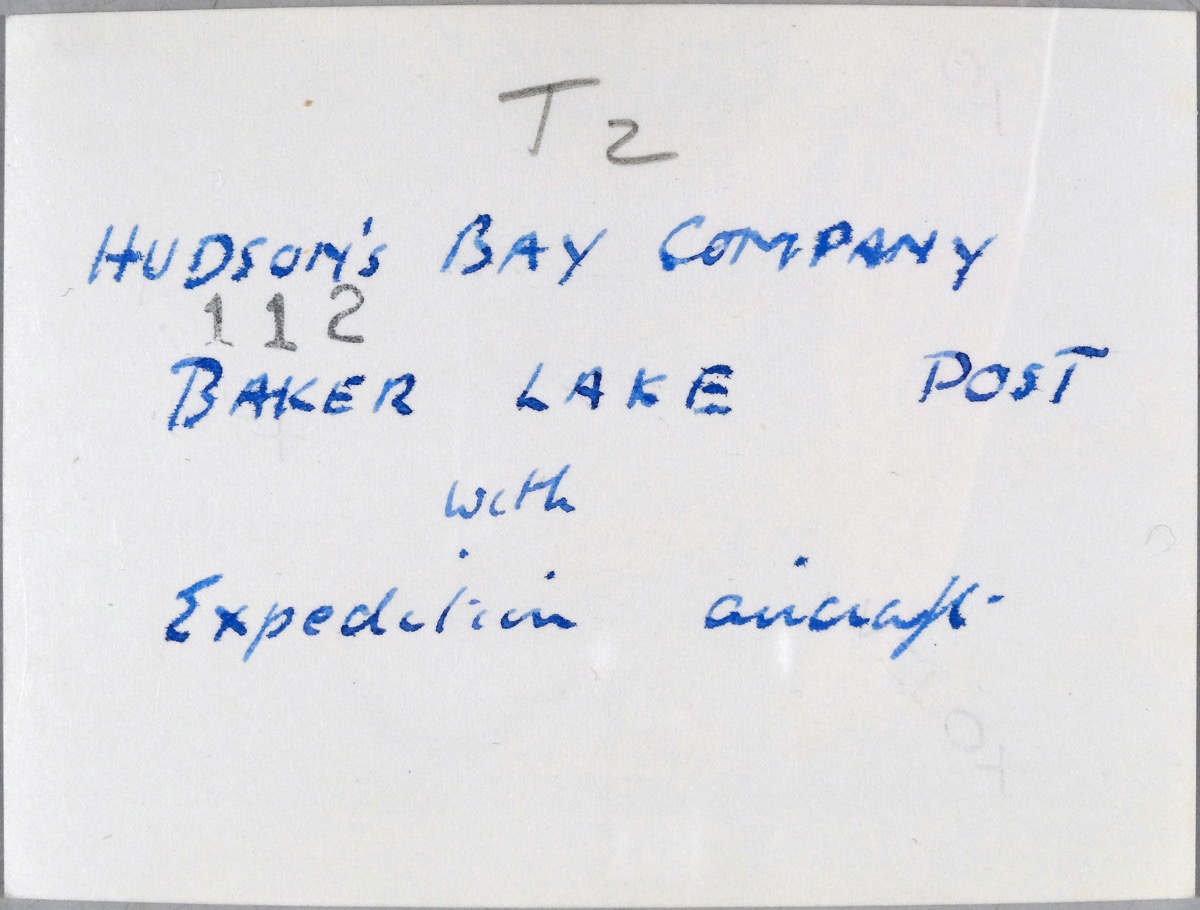 T2
HUDSON'S BAY COMPANY
112
BAKER LAKE POST
with
Expedition aircraft